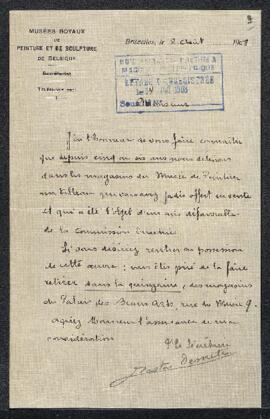 MUSÉES ROYAUX
DE
PEINTURE ET DE SCULPTURE
DE BELGIQUE
Secrétariat
Bruxelles, le 2 Août 190
Monsieur
J'ai l'honneur de vous faire connaître
que depuis cinq ou six ans nous détenons
dans les magasins du Musée de Peinture
un tableau que vous avez jadis offert en vente
et qui a été l'objet d'un avis défavorable
de la Commission
Si vous désirez rentrer en possession
de cette œuvre, vous êtes prié de la faire
retirer dans la quinzaine, des magasins
du Palais des Beaux Arts, rue du Musée 9.
Agréez Monsieur l'assurance de ma
considération
Le Secrétaire